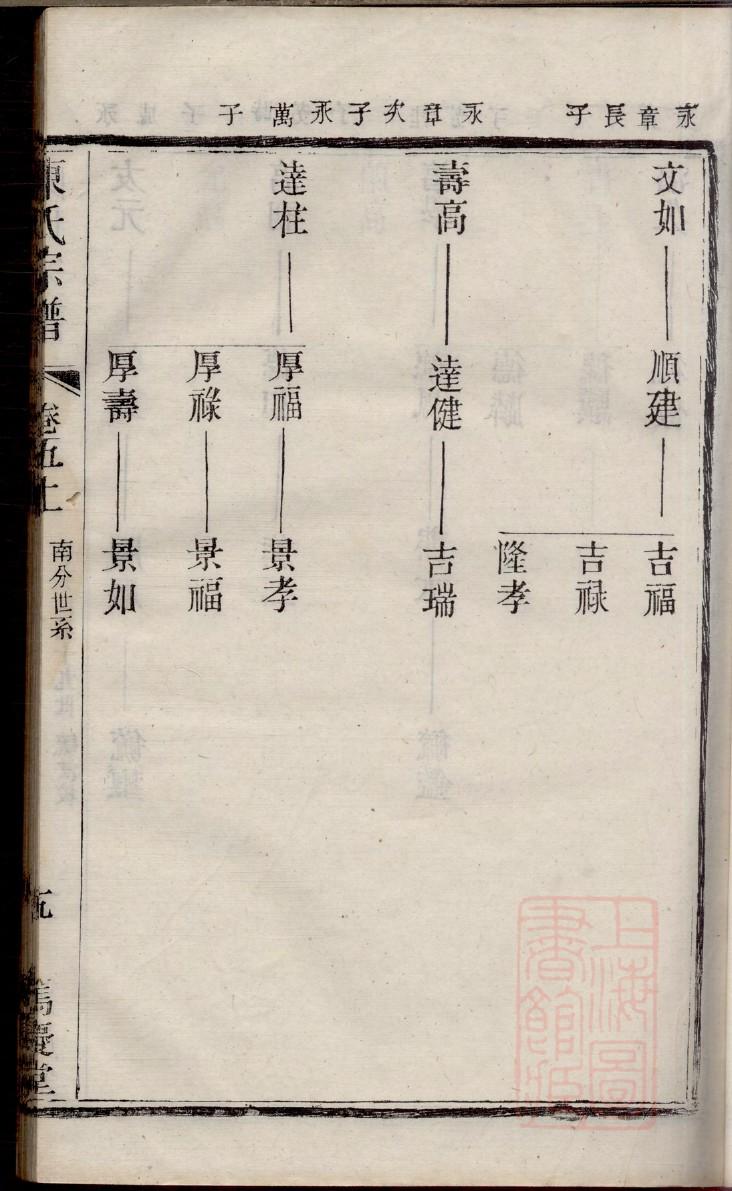 永章長子
永章次子
永萬子
文如
順建
吉福
吉祿
隆孝
壽高
達健
吉瑞
達柱
厚福
景孝
厚祿
景福
厚壽
景如
陳氏宗譜
卷五上
南分世系
五
篤慶堂
上海圖書館藏